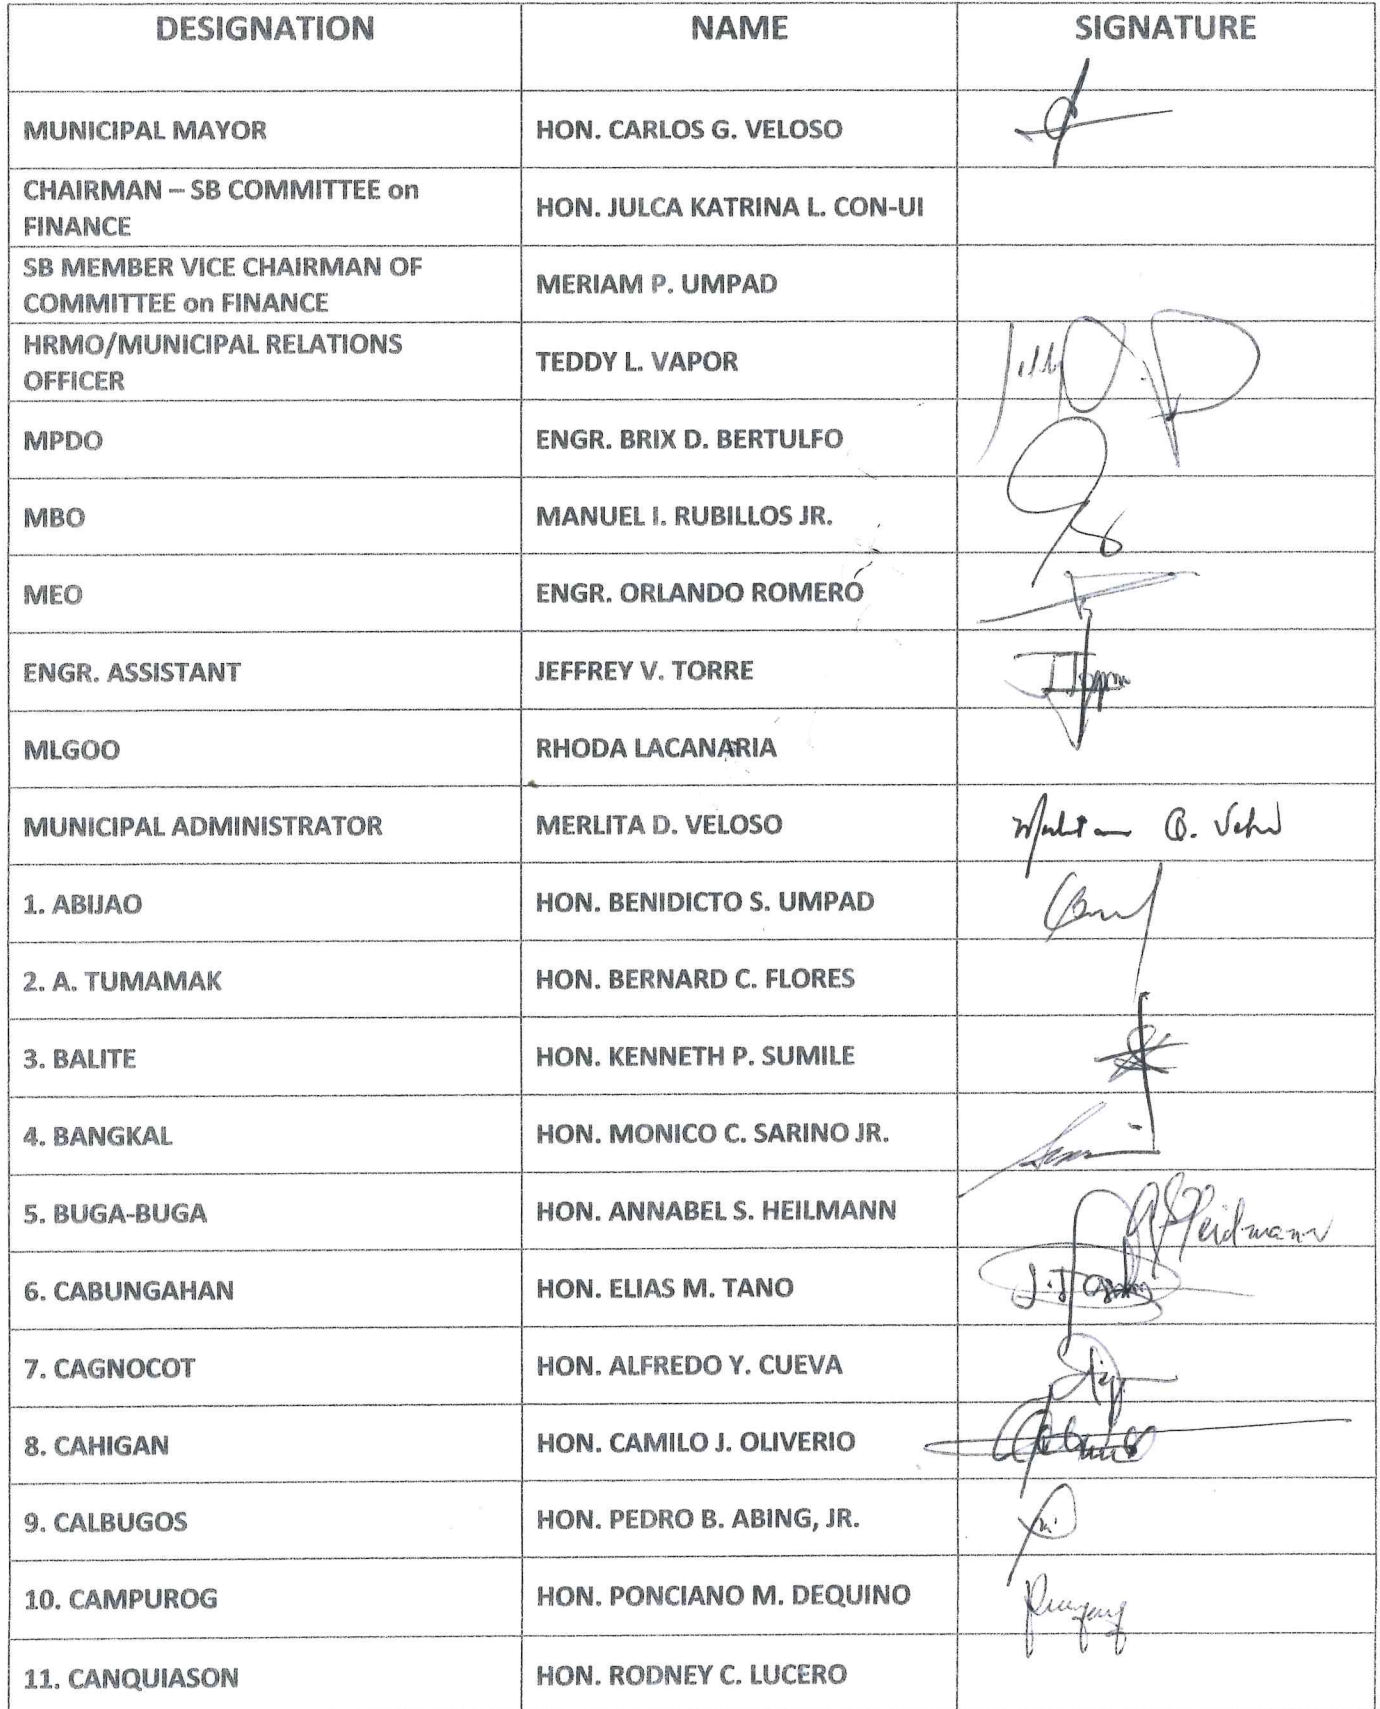 DESIGNATION NAME SIGNATURE
MUNICIPAL MAYOR HON. CARLOS G. VELOSO
CHAIRMAN – SB COMMITTEE on
FINANCE HON. JULCA KATRINA L. CON-UI
SB MEMBER VICE CHAIRMAN OF
COMMITTEE on FINANCE MERIAM P. UMPAD
HRMO/MUNICIPAL RELATIONS
OFFICER TEDDY L. VAPOR
MPDO ENGR. BRIX D. BERTULFO
MBO MANUEL I. RUBILLOS JR.
MEO ENGR. ORLANDO ROMERO
ENGR. ASSISTANT JEFFREY V. TORRE
MLGOO RHODA LACANARIA
MUNICIPAL ADMINISTRATOR MERLITA D. VELOSO
1. ABIJAO HON. BENIDICTO S. UMPAD
2. A. TUMAMAK HON. BERNARD C. FLORES
3. BALITE HON. KENNETH P. SUMILE
4. BANGKAL HON. MONICO C. SARINO JR.
5. BUGA-BUGA HON. ANNABEL S. HEILMANN
6. CABUNGAHAN HON. ELIAS M. TANO
7. CAGNOCOT HON. ALFREDO Y. CUEVA
8. CAHIGAN HON. CAMILO J. OLIVERIO
9. CALBUGOS HON. PEDRO B. ABING, JR.
10. CAMPUROG HON. PONCIANO M. DEQUINO
11. CANQUIASON HON. RODNEY C. LUCERO